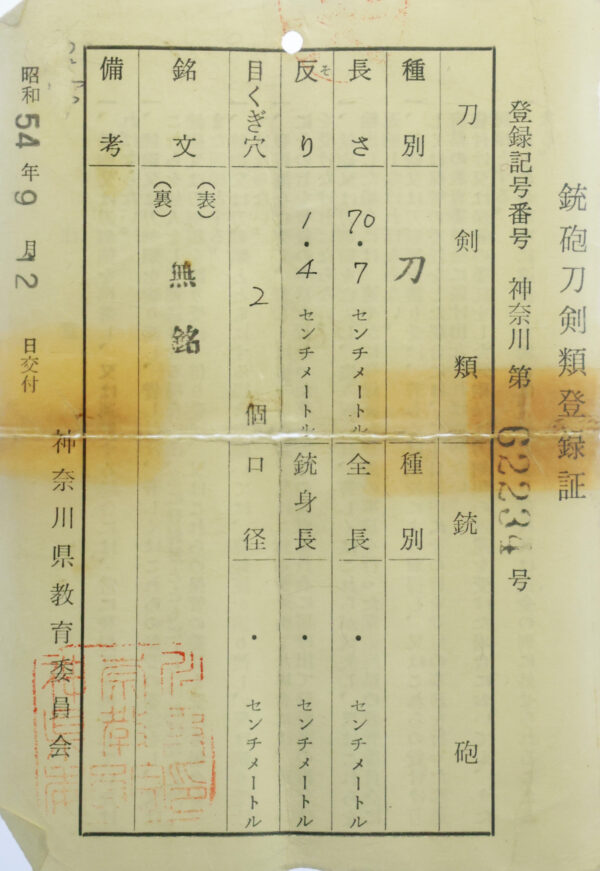 銃砲刀剣類登録証
登録記号番号 神奈川 第 62234 号
刀剣類
種別 刀
長さ 70・7 センチメートル
反り 1・4 センチメートル
そ
目くぎ穴 2 個
銘文 (表) 無銘
(裏)
備考
銃砲
種別
全長 ・ センチメートル
銃身長 ・ センチメートル
口径 ・ センチメートル
昭和 54 年 9 月 12 日交付
神奈川県教育委員会